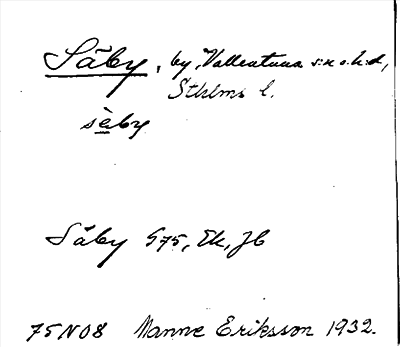 Säby, by, Vallentuna sn o. hd,
Sthlms l.
sèby
Säby G75, Ek, JB
75NO8 Manne Eriksson 1932.